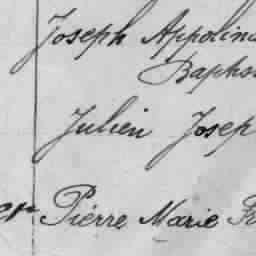 Joseph Appolina
Baptis
Julien Josep
Pierre Marie